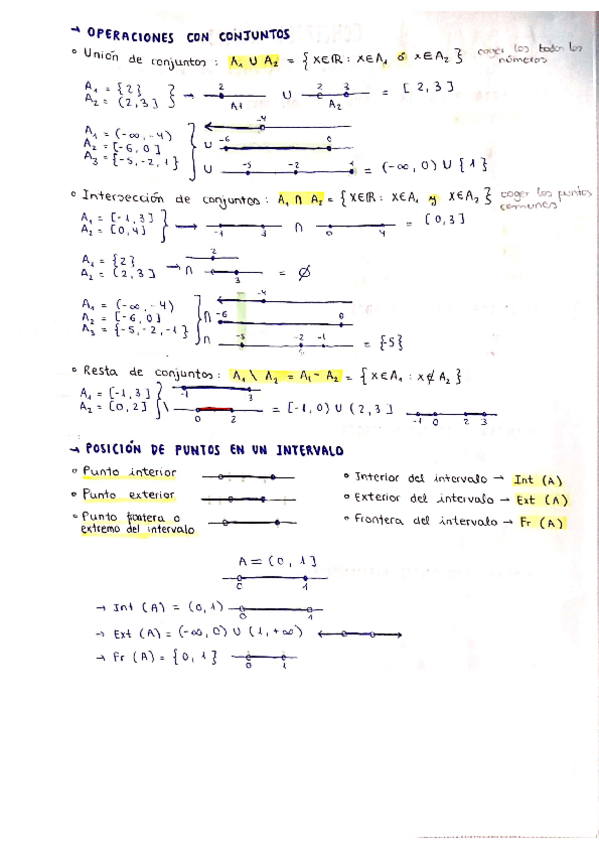 → OPERACIONES CON CONJUNTOS
° Unión de conjuntos : A₁ ∪ A₂ = { x∈ℝ : x∈A₁ ó x∈A₂ } coger los todos los
números
A₁ = {2}
A₂ = (2,3] } → 2 A1 ∪ 2 3 A₂ = [2,3]
A₁ = (-∞,-4) -4
A₂ = [-6,0] ∪ -6 0
A₃ = {-5,-2,1} ∪ -5 -2 1 = (-∞,0) ∪ {1}
° Intersección de conjuntos : A₁ ∩ A₂ = { x∈ℝ : x∈A₁ y x∈A₂ } coger los puntos
comunes
A₁ = [-1,3]
A₂ = [0,4] } → -1 3 ∩ 0 4 = [0,3]
A₁ = {2} 2
A₂ = (2,3] → ∩ 3 = ∅
A₁ = (-∞,-4) -4
A₂ = [-6,0] ∩ -6 0
A₃ = {-5,-2,-1} ∩ -5 -2 -1 = {-5}
° Resta de conjuntos : A₁ \ A₂ = A₁ - A₂ = { x∈A₁ : x∉A₂ }
A₁ = [-1,3] -1 3
A₂ = [0,2] \ 0 2 = [-1,0) ∪ (2,3] -1 0 2 3
→ POSICIÓN DE PUNTOS EN UN INTERVALO
° Punto interior
° Punto exterior
° Punto frontera o
extremo del intervalo
° Interior del intervalo → Int (A)
° Exterior del intervalo → Ext (A)
° Frontera del intervalo → Fr (A)
A = (0,1]
0 1
→ Int (A) = (0,1) 0 1
→ Ext (A) = (-∞,0) ∪ (1,+∞)
→ Fr (A) = {0,1} 0 1